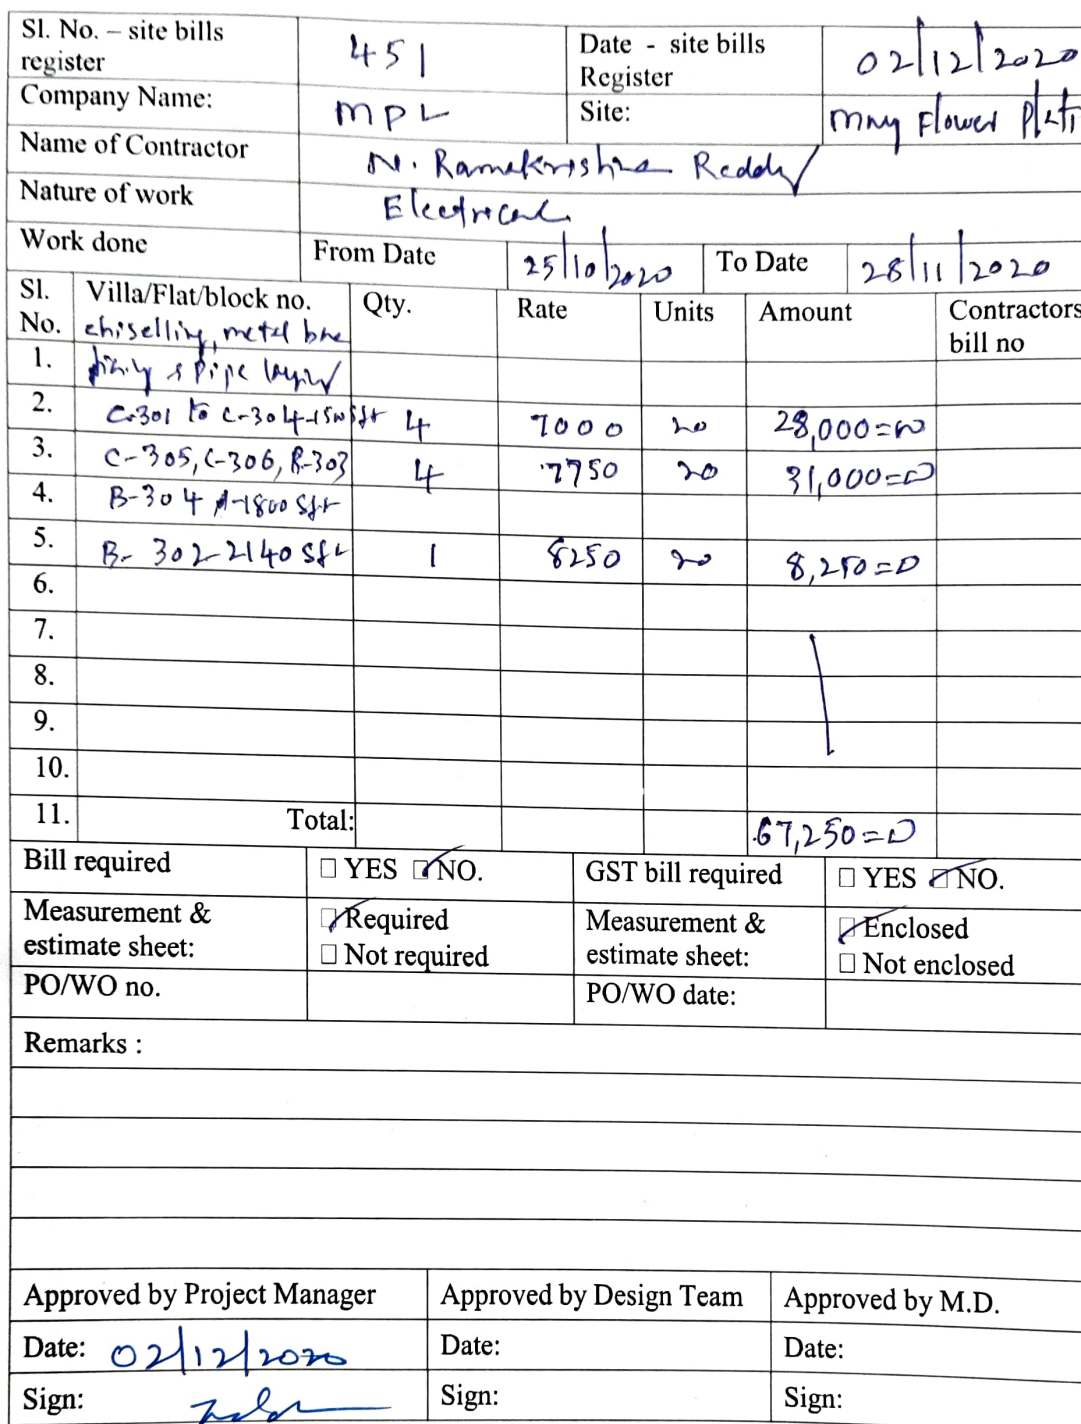 Sl. No. – site bills register 451 Date - site bills Register 02/12/2020
Company Name: MPL Site: May Flower Plati
Name of Contractor N. Ramakrishna Reddy
Nature of work Electrical
Work done From Date 25/10/2020 To Date 28/11/2020
Sl. No. Villa/Flat/block no. Qty. Rate Units Amount Contractors bill no
chiselling, metal box
1. fixing & pipe laying
2. C-301 to C-304-1500 sft 4 7000 no 28,000=00
3. C-305, C-306, B-303 4 7750 no 31,000=00
4. B-304 1800 Sft
5. B-302-2140 sft 1 8250 no 8,250=0
6.
7.
8.
9.
10.
11. Total: 67,250=0
Bill required ☐ YES ☑ NO. GST bill required ☐ YES ☑ NO.
Measurement & estimate sheet: ☑ Required Measurement & estimate sheet: ☑ Enclosed
☐ Not required ☐ Not enclosed
PO/WO no. PO/WO date:
Remarks :
Approved by Project Manager Approved by Design Team Approved by M.D.
Date: 02/12/2020 Date: Date:
Sign: Sign: Sign: